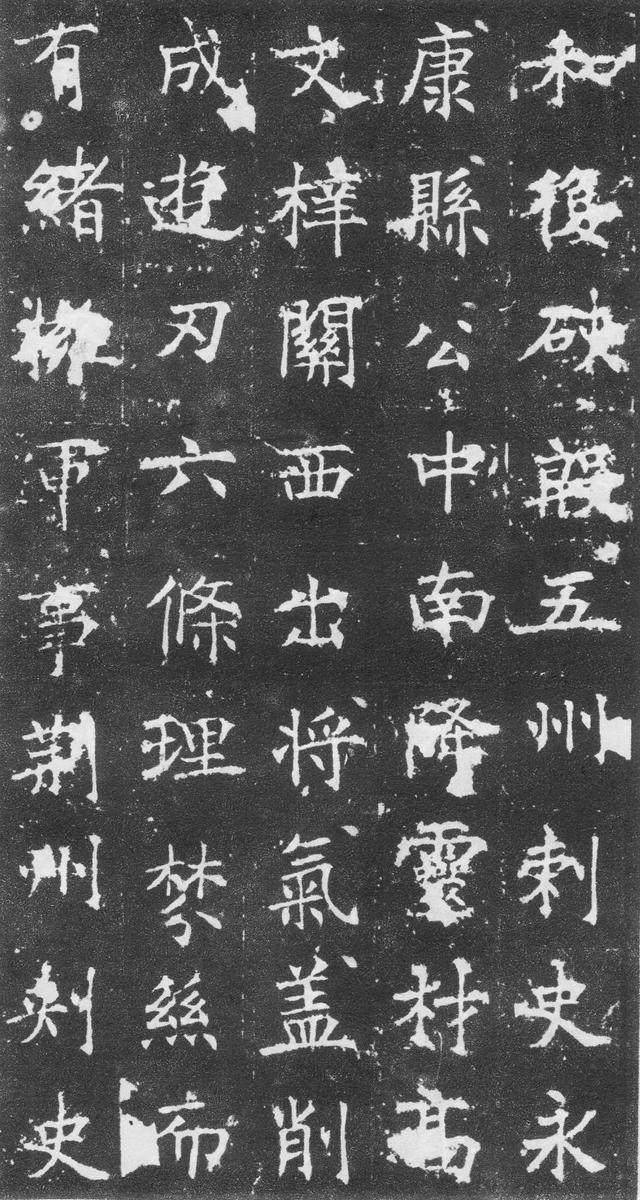 和復硤五州刺史永
康縣公中南降靈材高
文梓關西出将氣盖削
成遊刃六條理棼絲而
有緒軍事荊州刾史